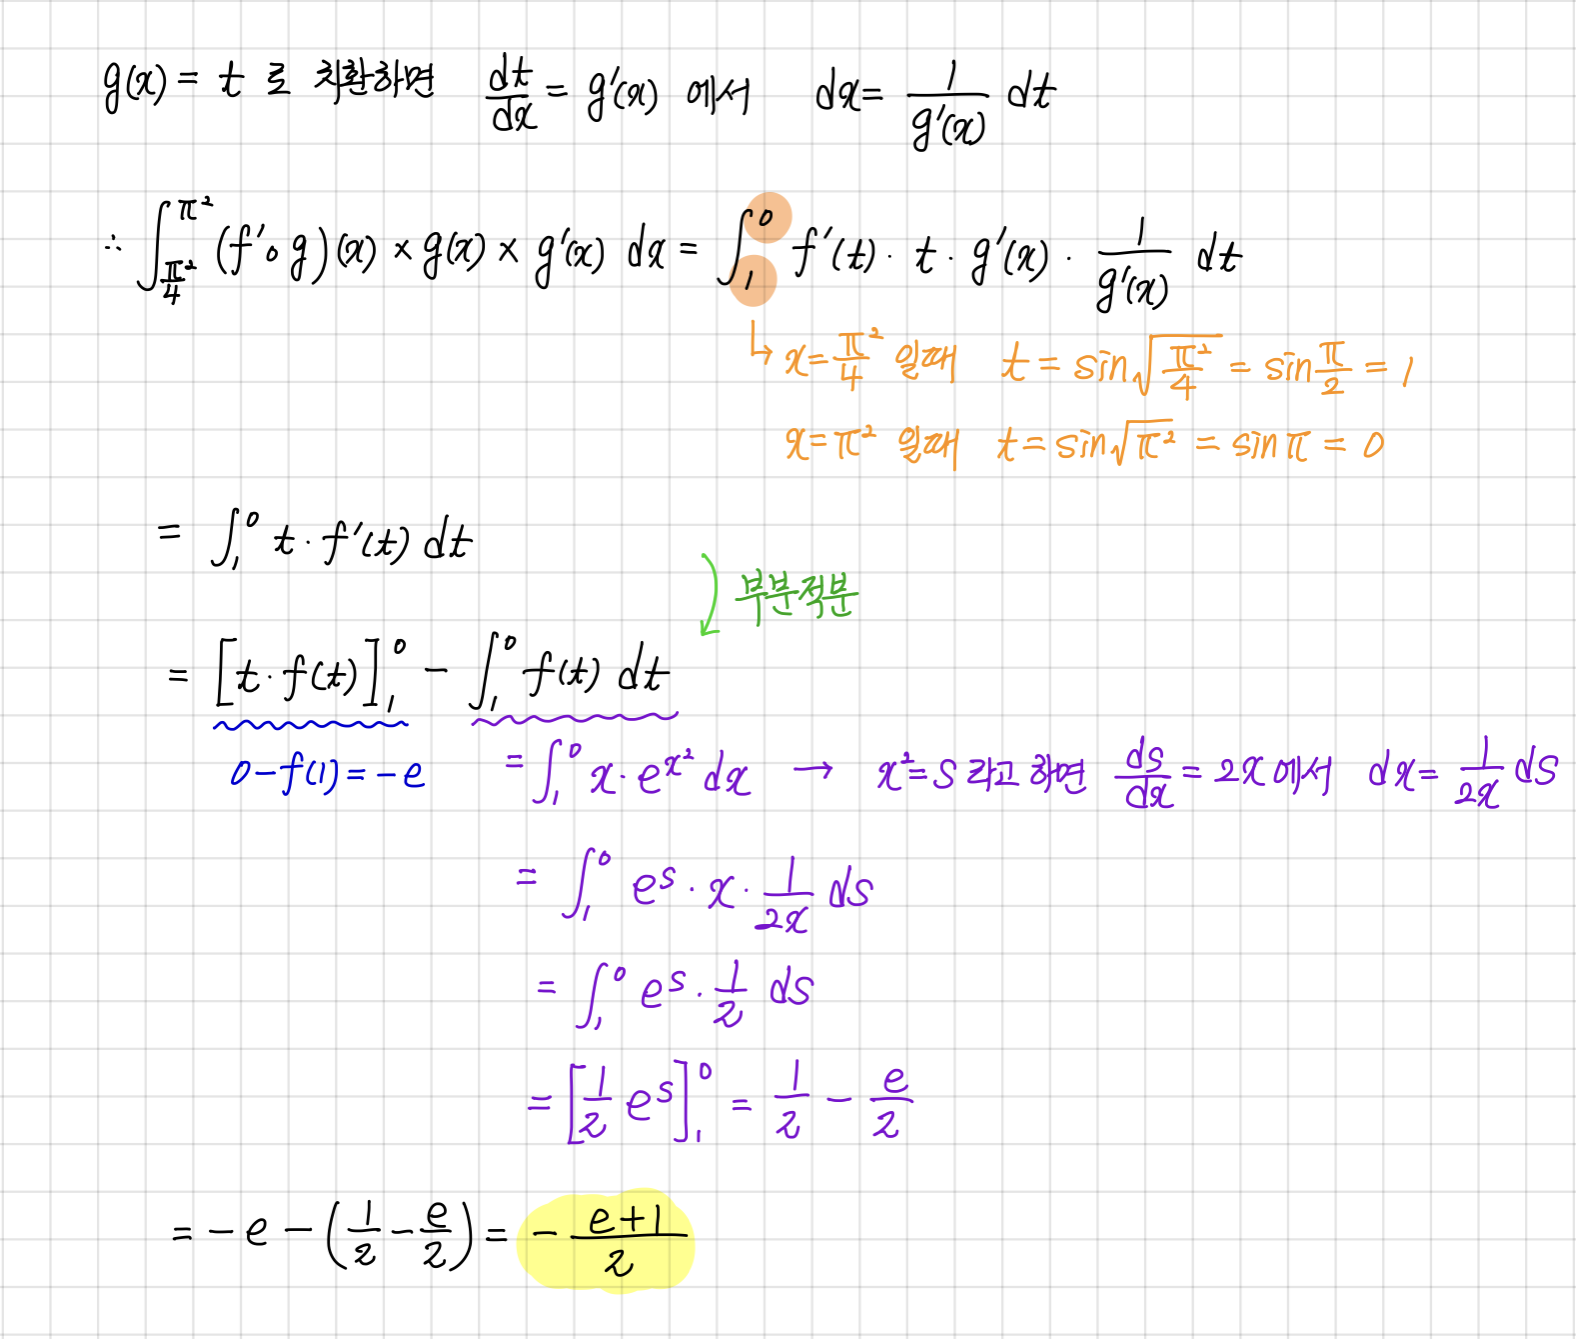 g(x) = t 로 치환하면 dt/dx = g'(x) 에서 dx = 1/g'(x) dt
∴ ∫_{π²/4}^{π²} (f'∘g)(x) × g(x) × g'(x) dx = ∫_1^0 f'(t) · t · g'(x) · 1/g'(x) dt
↳ x = π²/4 일때 t = sin√(π²/4) = sin π/2 = 1
x = π² 일때 t = sin√(π²) = sin π = 0
= ∫_1^0 t · f'(t) dt
부분적분
= [t · f(t)]_1^0 - ∫_1^0 f(t) dt
0 - f(1) = -e
= ∫_1^0 x · e^{x²} dx → x² = s 라고 하면 ds/dx = 2x 에서 dx = 1/2x ds
= ∫_1^0 e^s · x · 1/2x ds
= ∫_1^0 e^s · 1/2 ds
= [1/2 e^s]_1^0 = 1/2 - e/2
= -e - (1/2 - e/2) = - (e+1)/2